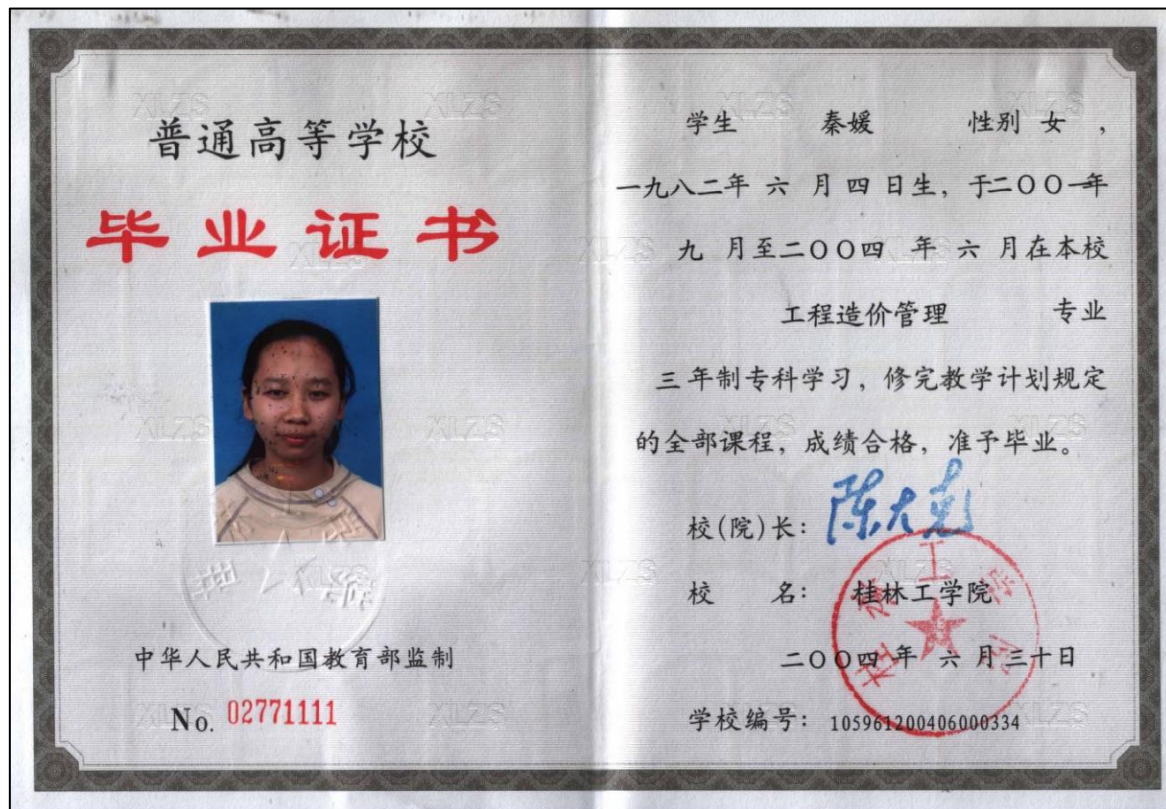 普通高等学校
毕业证书
中华人民共和国教育部监制
No. 02771111
学生 秦媛 性别 女 ,
一九八二年 六 月 四 日生, 于二〇〇一年
九 月至二〇〇四 年 六 月在本校
工程造价管理 专业
三 年制专科学习, 修完教学计划规定
的全部课程, 成绩合格, 准予毕业。
校(院)长: 陈大克
校 名: 桂林工学院
二〇〇四 年 六 月三十日
学校编号: 105961200406000334
桂林工学院
XLZS